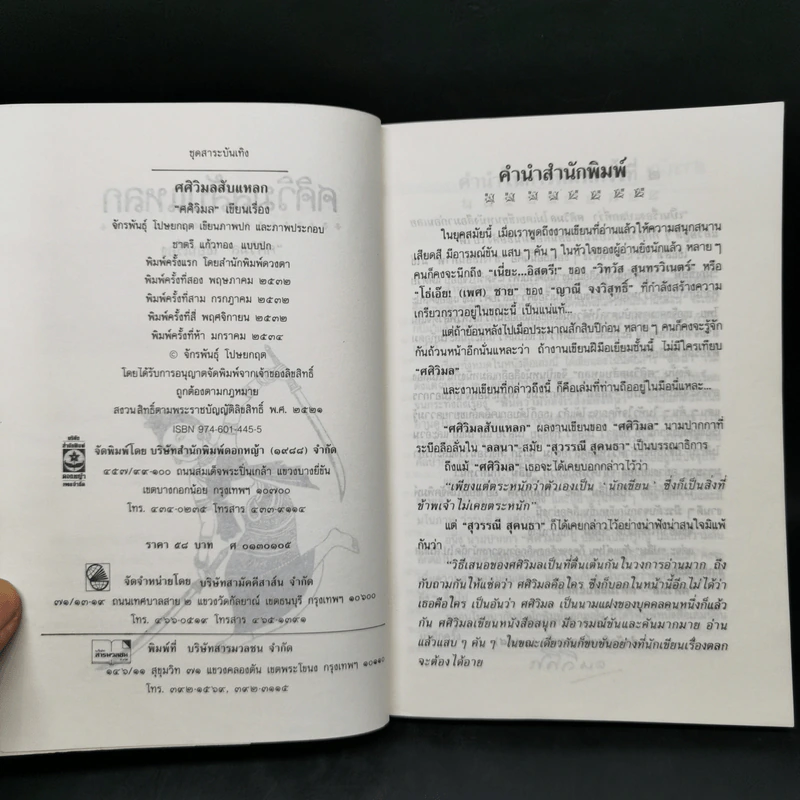 ชุดสาระบันเทิง
ศศิวิมลสับแหลก
"ศศิวิมล" เขียนเรื่อง
จักรพันธุ์ โปษยกฤต เขียนภาพปก และภาพประกอบ
ชาตรี แก้วทอง แบบปก
พิมพ์ครั้งแรก โดยสำนักพิมพ์ดวงตา
พิมพ์ครั้งที่สอง พฤษภาคม ๒๕๓๒
พิมพ์ครั้งที่สาม กรกฎาคม ๒๕๓๒
พิมพ์ครั้งที่สี่ พฤศจิกายน ๒๕๓๒
พิมพ์ครั้งที่ห้า มกราคม ๒๕๓๔
© จักรพันธุ์ โปษยกฤต
โดยได้รับการอนุญาตจัดพิมพ์จากเจ้าของลิขสิทธิ์
ถูกต้องตามกฎหมาย
สงวนสิทธิ์ตามพระราชบัญญัติลิขสิทธิ์ พ.ศ. ๒๕๒๑
ISBN 974-601-445-5
จัดพิมพ์โดย บริษัทสำนักพิมพ์ดอกหญ้า (๑๙๘๘) จำกัด
๔๕๗/๙๙-๑๐๐ ถนนสมเด็จพระปิ่นเกล้า แขวงบางยี่ขัน
เขตบางกอกน้อย กรุงเทพฯ ๑๐๗๐๐
โทร. ๔๓๔-๐๒๓๕ โทรสาร ๔๓๓-๙๑๑๔
ราคา ๕๘ บาท ศ ๐๑๓๐๑๐๕
จัดจำหน่ายโดย บริษัทสามัคคีสาส์น จำกัด
๗๑/๑๓-๑๙ ถนนเทศบาลสาย ๒ แขวงวัดกัลยาณ์ เขตธนบุรี กรุงเทพฯ ๑๐๖๐๐
โทร. ๔๖๖-๐๕๑๙ โทรสาร ๔๖๕-๑๓๙๑
พิมพ์ที่ บริษัทสารมวลชน จำกัด
๑๔๖/๑๑ สุขุมวิท ๗๑ แขวงคลองตัน เขตพระโขนง กรุงเทพฯ ๑๐๑๑๐
โทร. ๓๙๒-๑๕๖๙, ๓๙๒-๓๑๑๕
คำนำสำนักพิมพ์
ในยุคสมัยนี้ เมื่อเราพูดถึงงานเขียนที่อ่านแล้วให้ความสนุกสนาน
เสียดสี มีอารมณ์ขัน แสบ ๆ คัน ๆ ในหัวใจของผู้อ่านยิ่งนักแล้ว หลาย ๆ
คนก็คงจะนึกถึง "เนี่ยะ...อิสตรี!" ของ "วิทวัส สุนทรวิเนตร์" หรือ
"โธ่เอ๊ย! (เพศ) ชาย" ของ "ญาณี จงวิสุทธิ์" ที่กำลังสร้างความ
เกรียวกราวอยู่ในขณะนี้ เป็นแน่แท้...
แต่ถ้าย้อนหลังไปเมื่อประมาณสักสิบปีก่อน หลาย ๆ คนก็คงจะรู้จัก
กันถ้วนหน้าอีกนั่นแหละว่า ถ้างานเขียนฝีมือเยี่ยมชั้นนี้ ไม่มีใครเทียบ
"ศศิวิมล"
และงานเขียนที่กล่าวถึงนี้ ก็คือเล่มที่ท่านถืออยู่ในมือนี่แหละ...
"ศศิวิมลสับแหลก" ผลงานเขียนของ "ศศิวิมล" นามปากกาที่
ระบือลือลั่นใน "ลลนา" สมัย "สุวรรณี สุคนธา" เป็นบรรณาธิการ
ถึงแม้ "ศศิวิมล" เธอจะได้เคยบอกกล่าวไว้ว่า
"เพียงแต่ตระหนักว่าตัวเองเป็น 'นักเขียน' ซึ่งก็เป็นสิ่งที่
ข้าพเจ้าไม่เคยตระหนัก"
แต่ "สุวรรณี สุคนธา" ก็ได้เคยกล่าวไว้อย่างน่าฟังน่าสนใจมิแพ้
กันว่า
"วิธีเสนอของศศิวิมลเป็นที่ตื่นเต้นกันในวงการอ่านมาก ถึง
กับถามกันให้แซ่ดว่า ศศิวิมลคือใคร ซึ่งก็บอกในหน้านี้อีกไม่ได้ว่า
เธอคือใคร เป็นอันว่า ศศิวิมล เป็นนามแฝงของบุคคลคนหนึ่งก็แล้ว
กัน ศศิวิมลเขียนหนังสือสนุก มีอารมณ์ขันและคันมากมาย อ่าน
แล้วแสบ ๆ คัน ๆ ในขณะเดียวกันก็ขบขันอย่างที่นักเขียนเรื่องตลก
จะต้องได้อาย